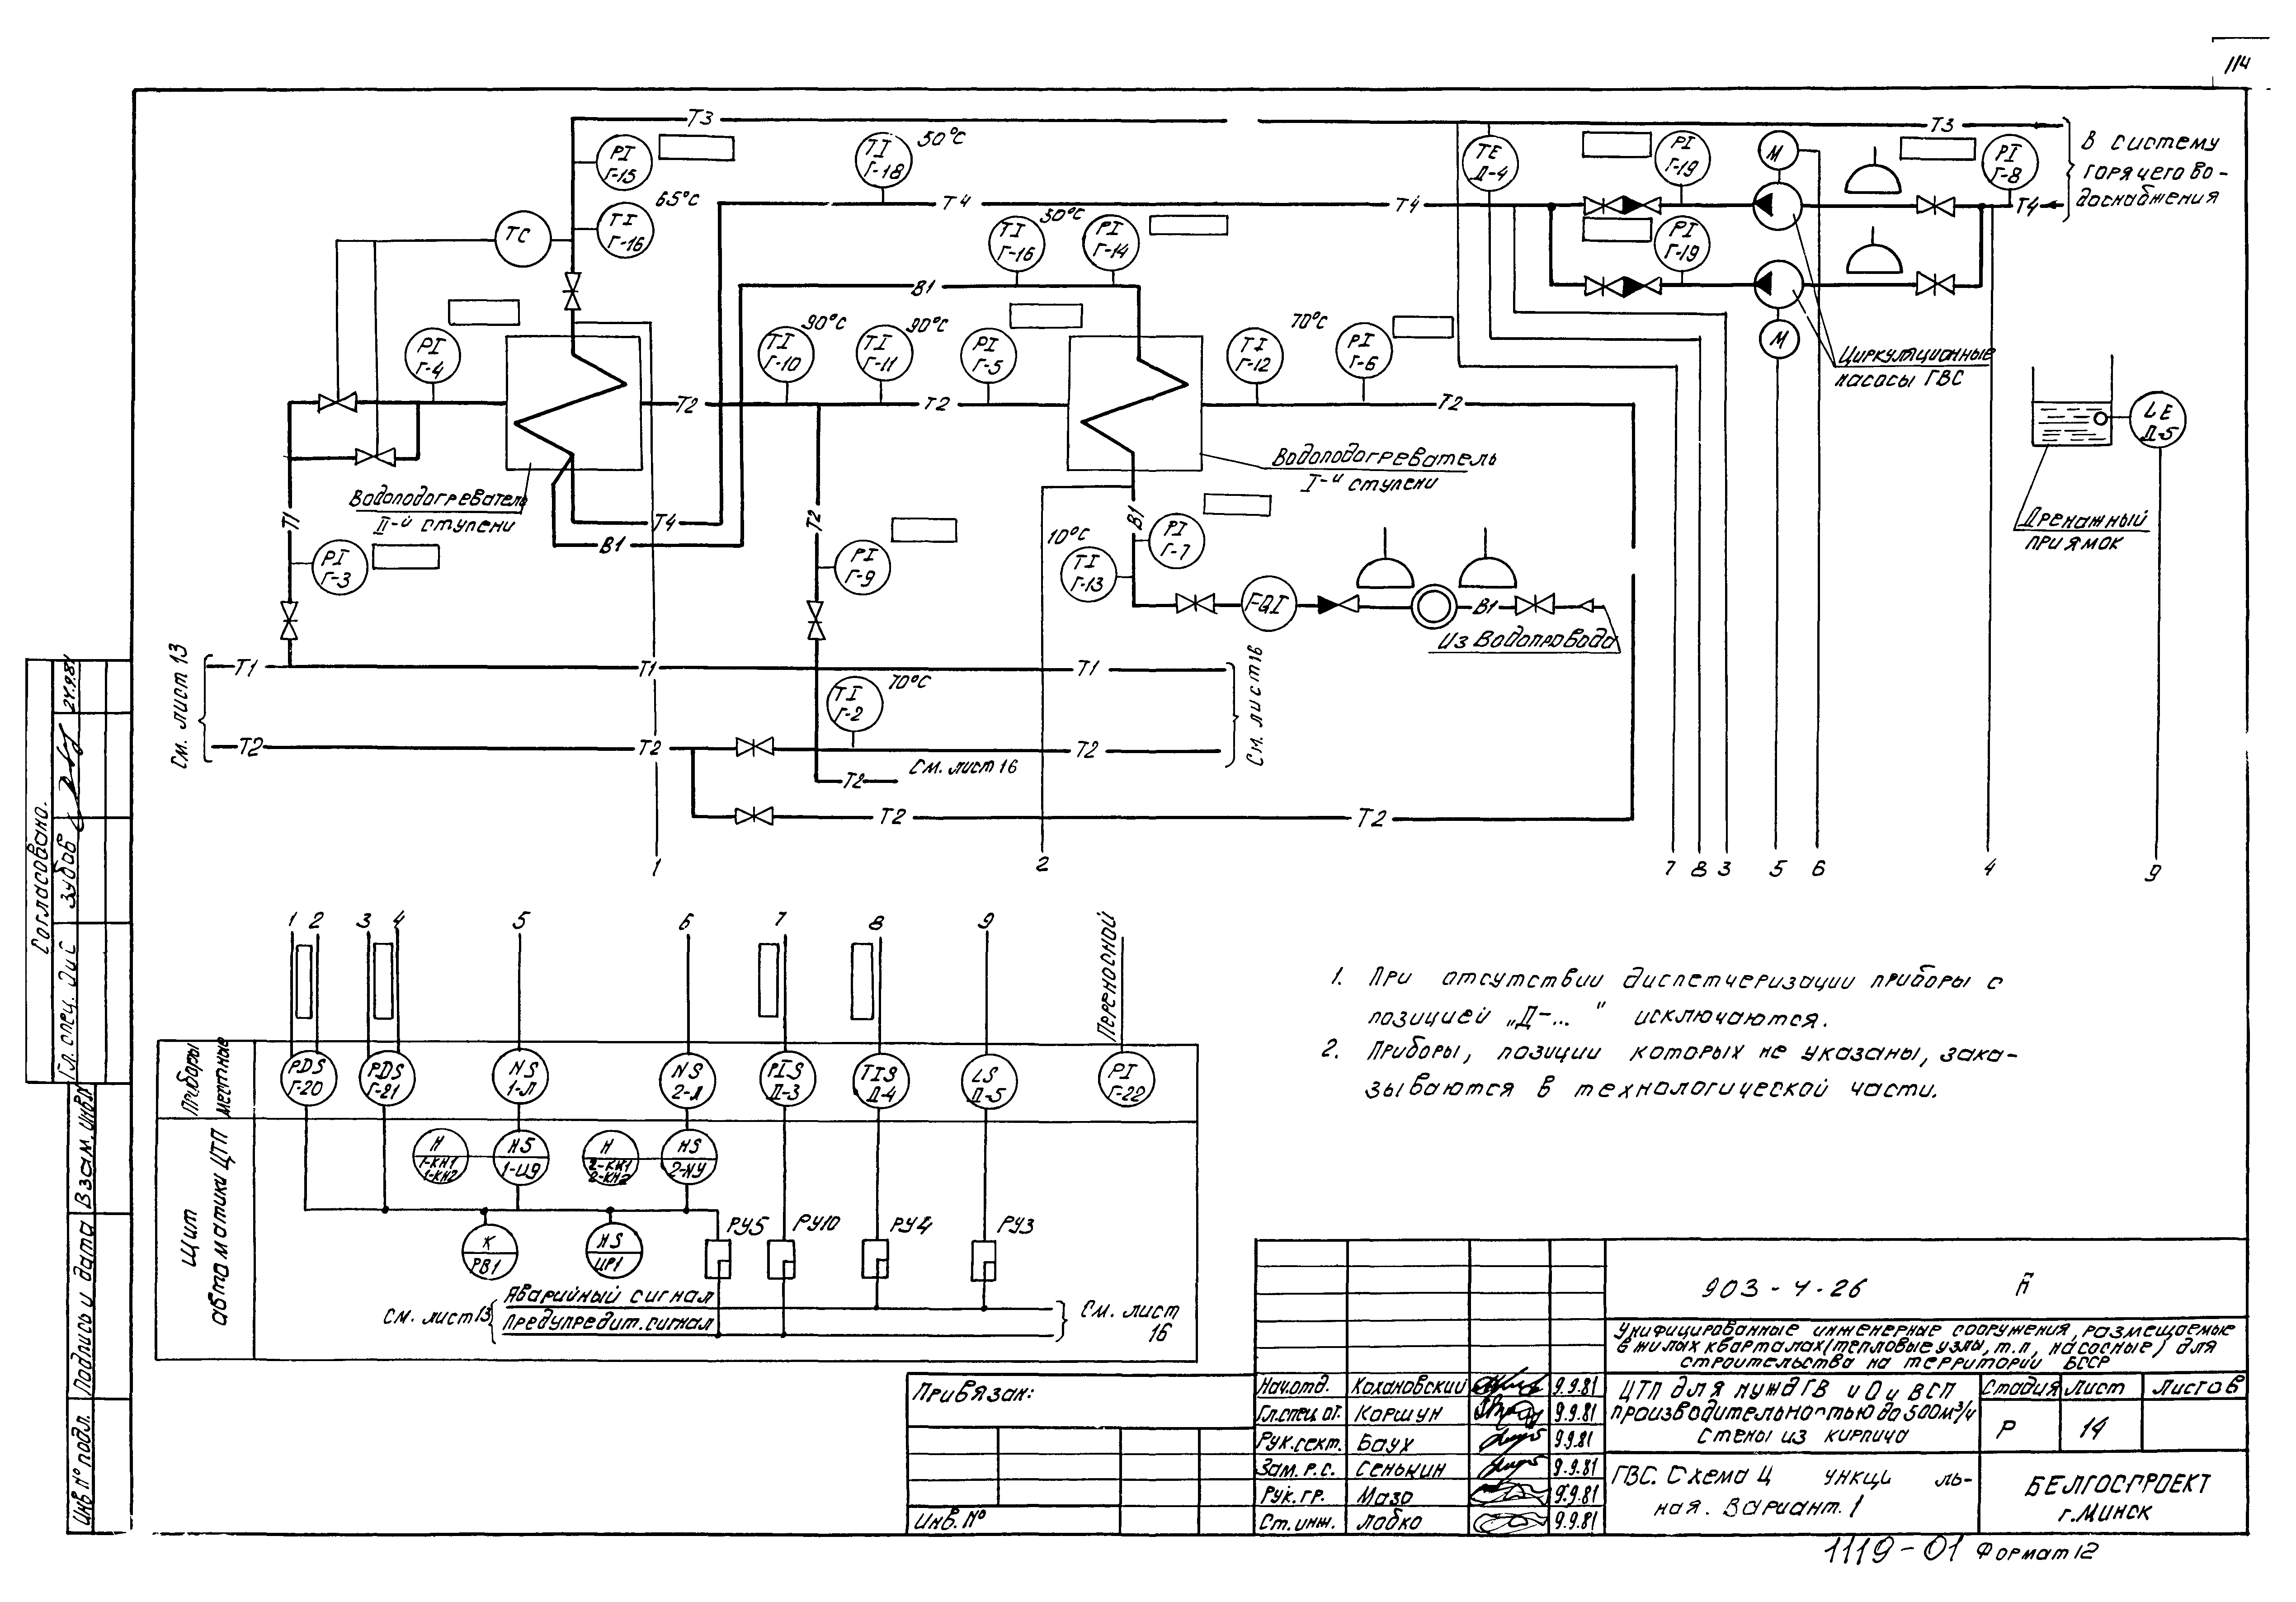 114
Т3
Т3
В систему
горячего во-
доснабжения
PI
Г-15
TI
Г-18
50°С
TE
Д-4
PI
Г-19
М
PI
Г-8
65°С
TI
Г-16
TC
Т4
Т4
Т4
30°С
TI
Г-16
PI
Г-14
PI
Г-19
В1
М
PI
Г-4
90°С
TI
Г-10
90°С
TI
Г-11
PI
Г-5
70°С
TI
Г-12
PI
Г-6
Циркуляционные
насосы ГВС
Т2
Т2
Т2
LE
Д-5
Водоподогреватель
II-й ступени
Водоподогреватель
I-й ступени
Дренажный
приямок
Т1
Т4
В1
Т2
В1
PI
Г-3
PI
Г-9
10°С
TI
Г-13
PI
Г-7
FQI
В1
Из водопровода
См. лист 13
Т1
Т1
Т1
См. лист 16
TI
Г-2
70°С
Т2
Т2
Т2
Т2
См. лист 16
Т2
Т2
1
2
7
8
3
5
6
4
9
1
2
3
4
5
6
7
8
9
Переносной
Приборы
местные
PDS
Г-20
PDS
Г-21
NS
1-Л
NS
2-Л
PIS
Д-3
TIS
Д-4
LS
Д-5
PI
Г-22
Щит
автоматики ЦТП
Н
1-КН1
1-КН2
HS
Н
2-КН1
2-КН2
HS
К
РВ1
HS
РУ5
РУ10
РУ4
РУ3
См. лист 13
Аварийный сигнал
Предупредит. сигнал
См. лист
16
1. При отсутствии диспетчеризации приборы с
позицией „Д-..." исключаются.
2. Приборы, позиции которых не указаны, зака-
зываются в технологической части.
Согласовано.
Гл. спец. ОиС
Зубов
24.9.81
Взам. инв.№
Подпись и дата
Инв.№ подл.
Привязан:
Инв. №
903-4-26
Унифицированные инженерные сооружения, размещаемые
в жилых кварталах (тепловые узлы, т.п., насосные) для
строительства на территории БССР
Нач.отд. Кохановский 9.9.81
Гл.спец. от. Коршун 9.9.81
Рук.сект. Баух 9.9.81
Зам. р.с. Сенькин 9.9.81
Рук. гр. Мазо 9.9.81
Ст. инж. Лобко 9.9.81
ЦТП для нужд ГВ и О и ВСП
производительностью до 500м³/ч
Стены из кирпича
Стадия Лист Листов
Р 14
ГВС. Схема Ц ункци ль-
ная. Вариант. 1
БЕЛГОСПРОЕКТ
г. Минск
1119-01 Формат 12